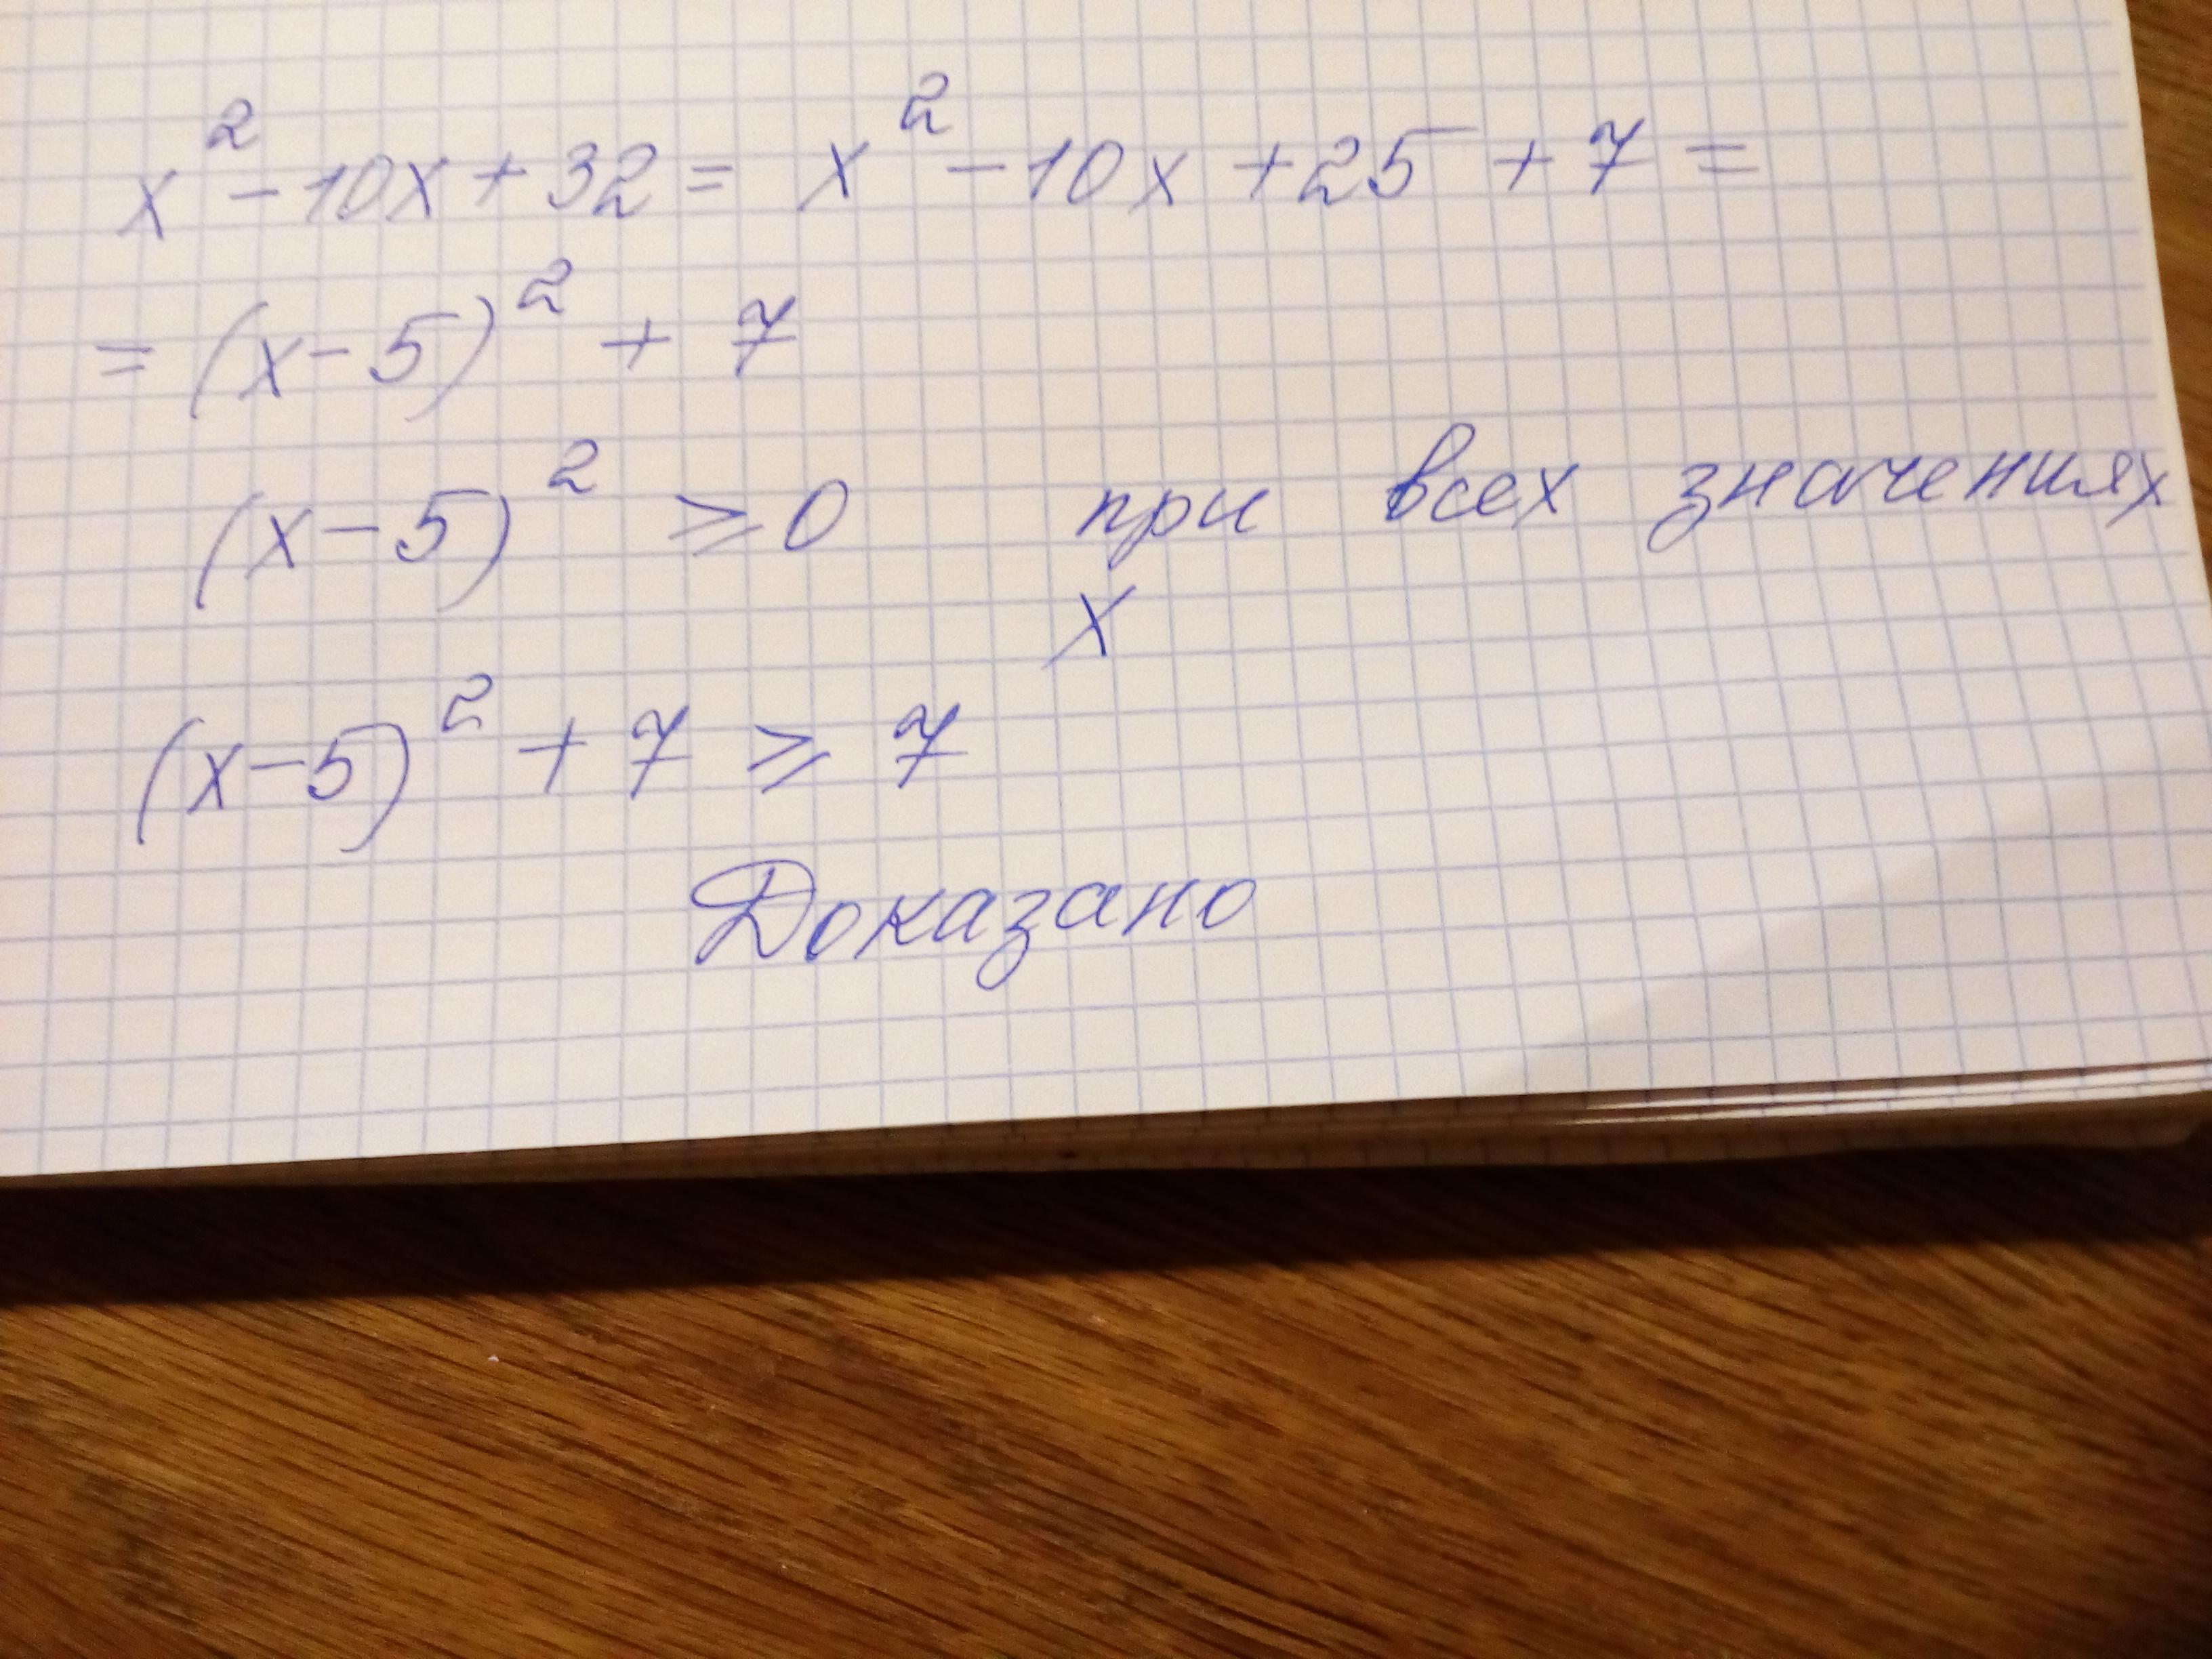 x² - 10x + 32 = x² - 10x + 25 + 7 =
= (x - 5)² + 7
(x - 5)² ⩾ 0 при всех значениях
x
(x - 5)² + 7 ⩾ 7
Доказано